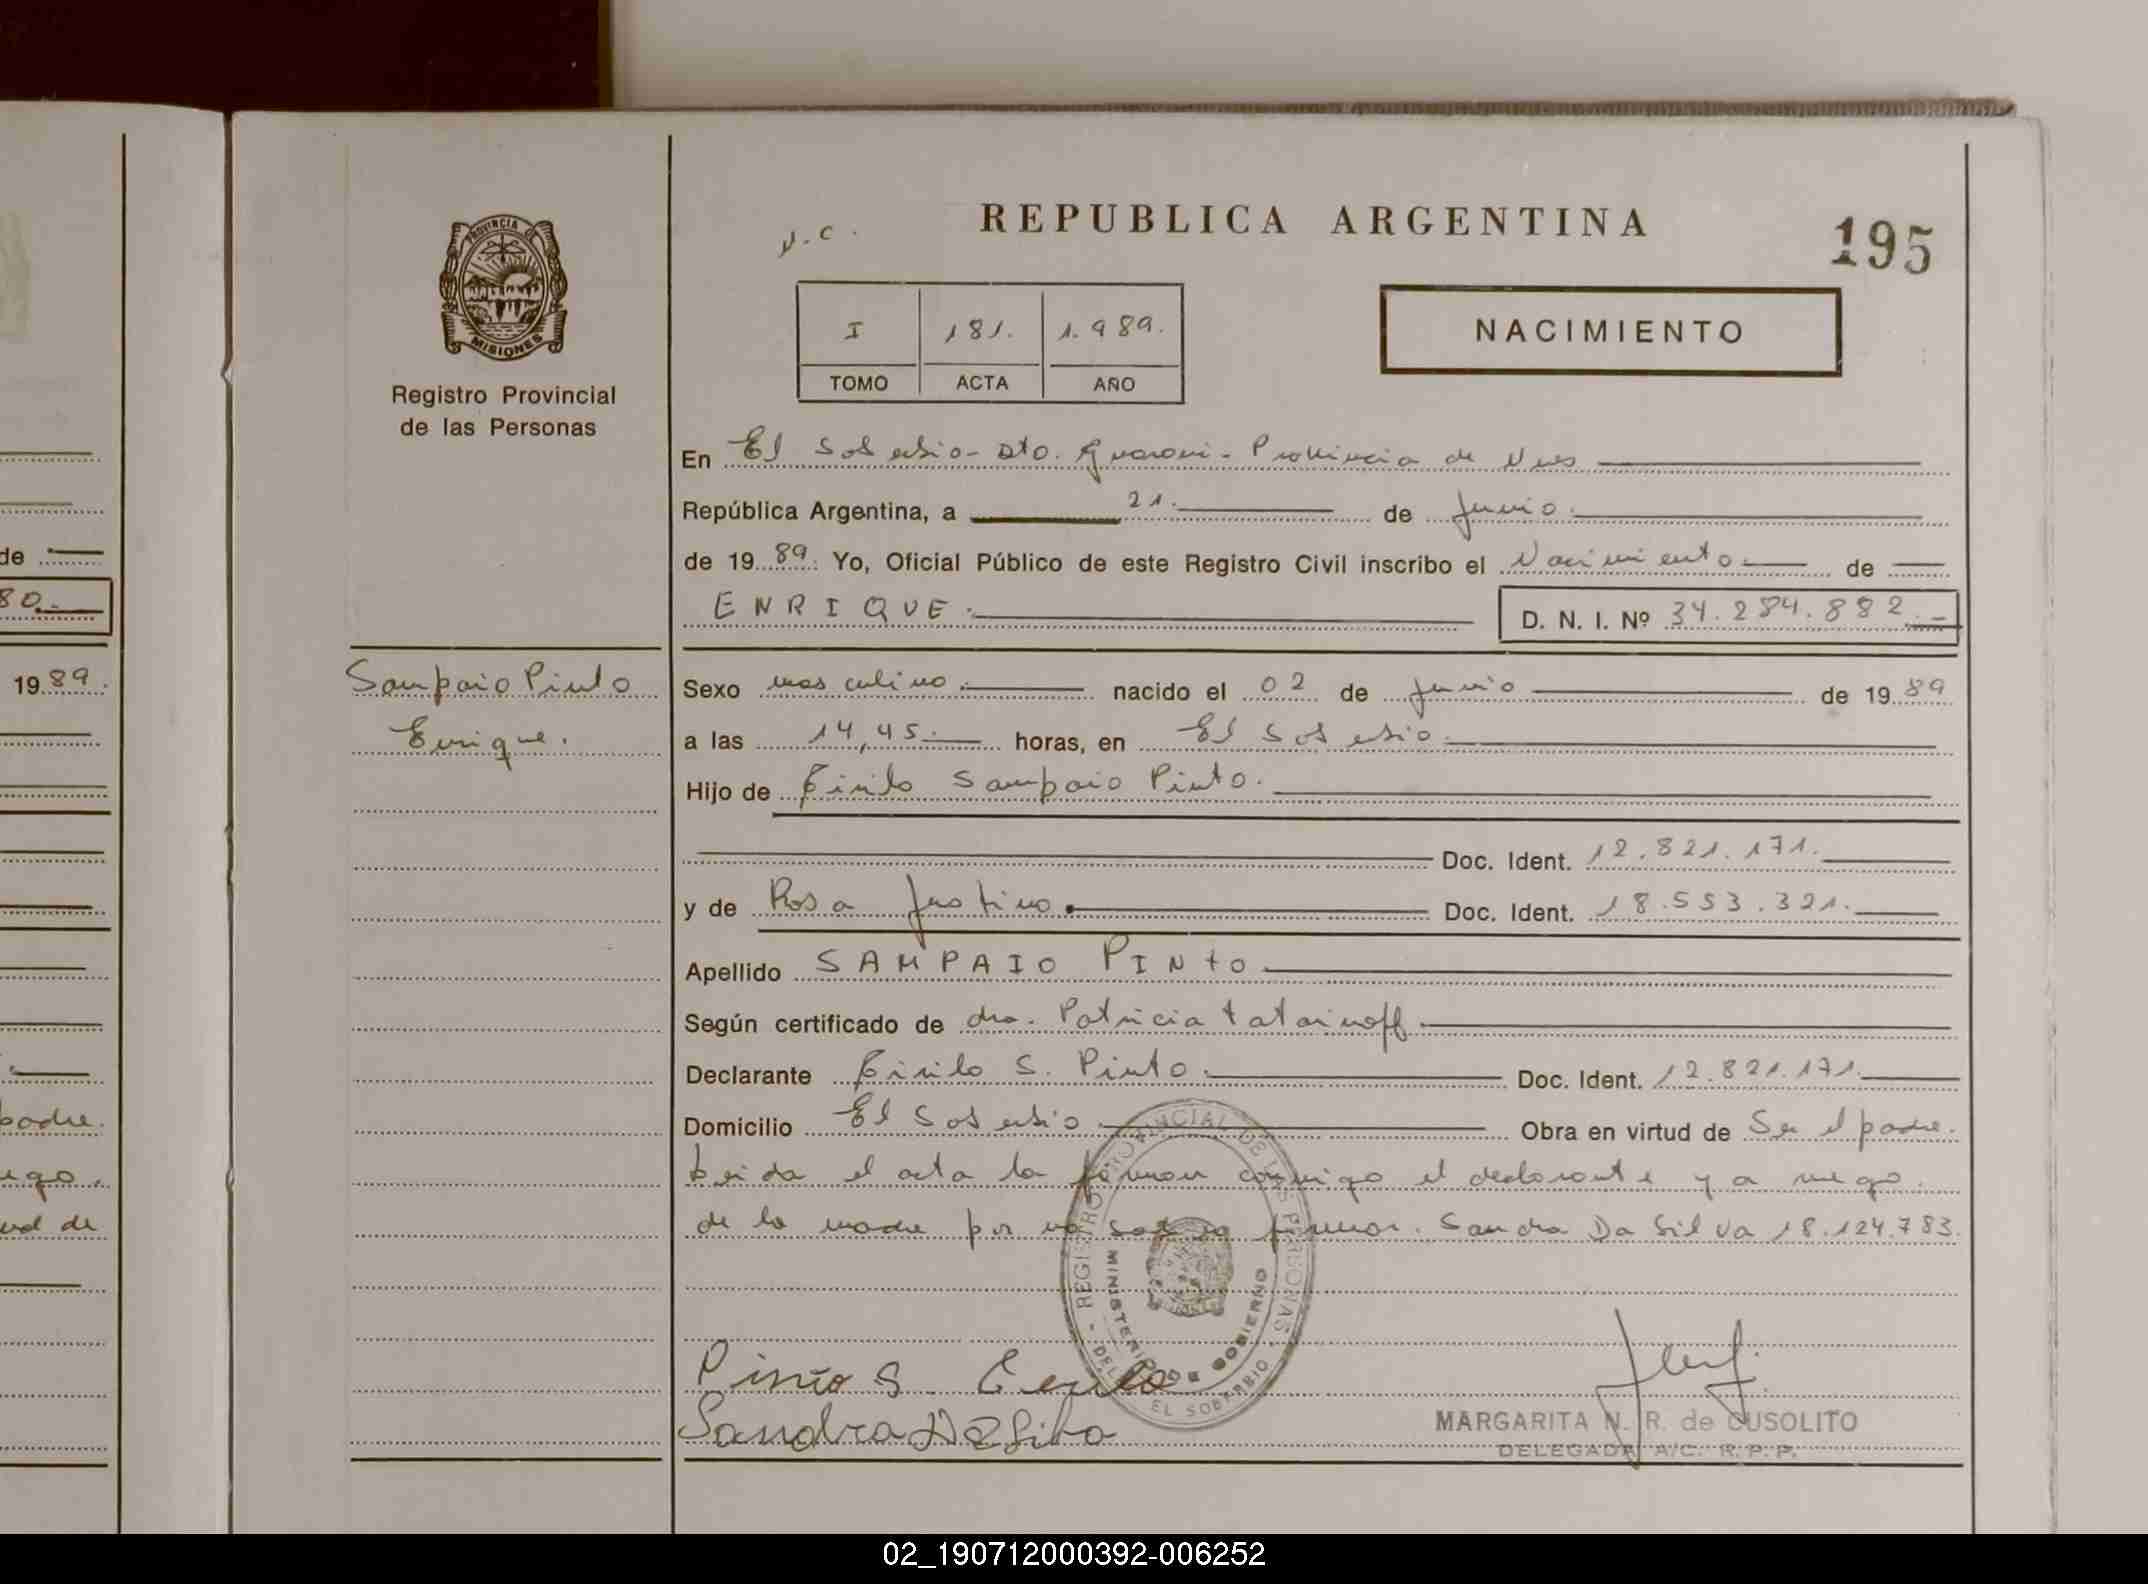 PROVINCIA DE
MISIONES
Registro Provincial
de las Personas
Sampaio Pinto
Enrique.
REPUBLICA ARGENTINA
195
I 181. 1.989.
TOMO ACTA AÑO
NACIMIENTO
En El Soberbio - Dto. Guarani - Provincia de Mnes
República Argentina, a 21. de Junio.
de 19 89. Yo, Oficial Público de este Registro Civil inscribo el Nacimiento de
ENRIQUE. D. N. I. Nº 34.284.882.-
Sexo masculino. nacido el 02 de Junio de 19 89
a las 14,45. horas, en El Soberbio.
Hijo de Cirilo Sampaio Pinto.
Doc. Ident. 12.821.171.
y de Rosa Justino. Doc. Ident. 18.553.321.
Apellido SAMPAIO PINTO
Según certificado de dra. Patricia tatarinoff
Declarante Cirilo S. Pinto. Doc. Ident. 12.821.171.
Domicilio El Soberbio. Obra en virtud de Ser el padre.
Leida el acta la firman conmigo el declarante y a ruego
de la madre por no saber firmar. Sandra Da Silva 18.124.783.
REGISTRO PROVINCIAL DE LAS PERSONAS
MINISTERIO DE GOBIERNO
EL SOBERBIO
Pinto S. Cerilo
Sandra Da Silva
MARGARITA N. R. de CUSOLITO
DELEGADA A/C. R. P. P.
de
80.-
19 89.
padre.
02_190712000392-006252